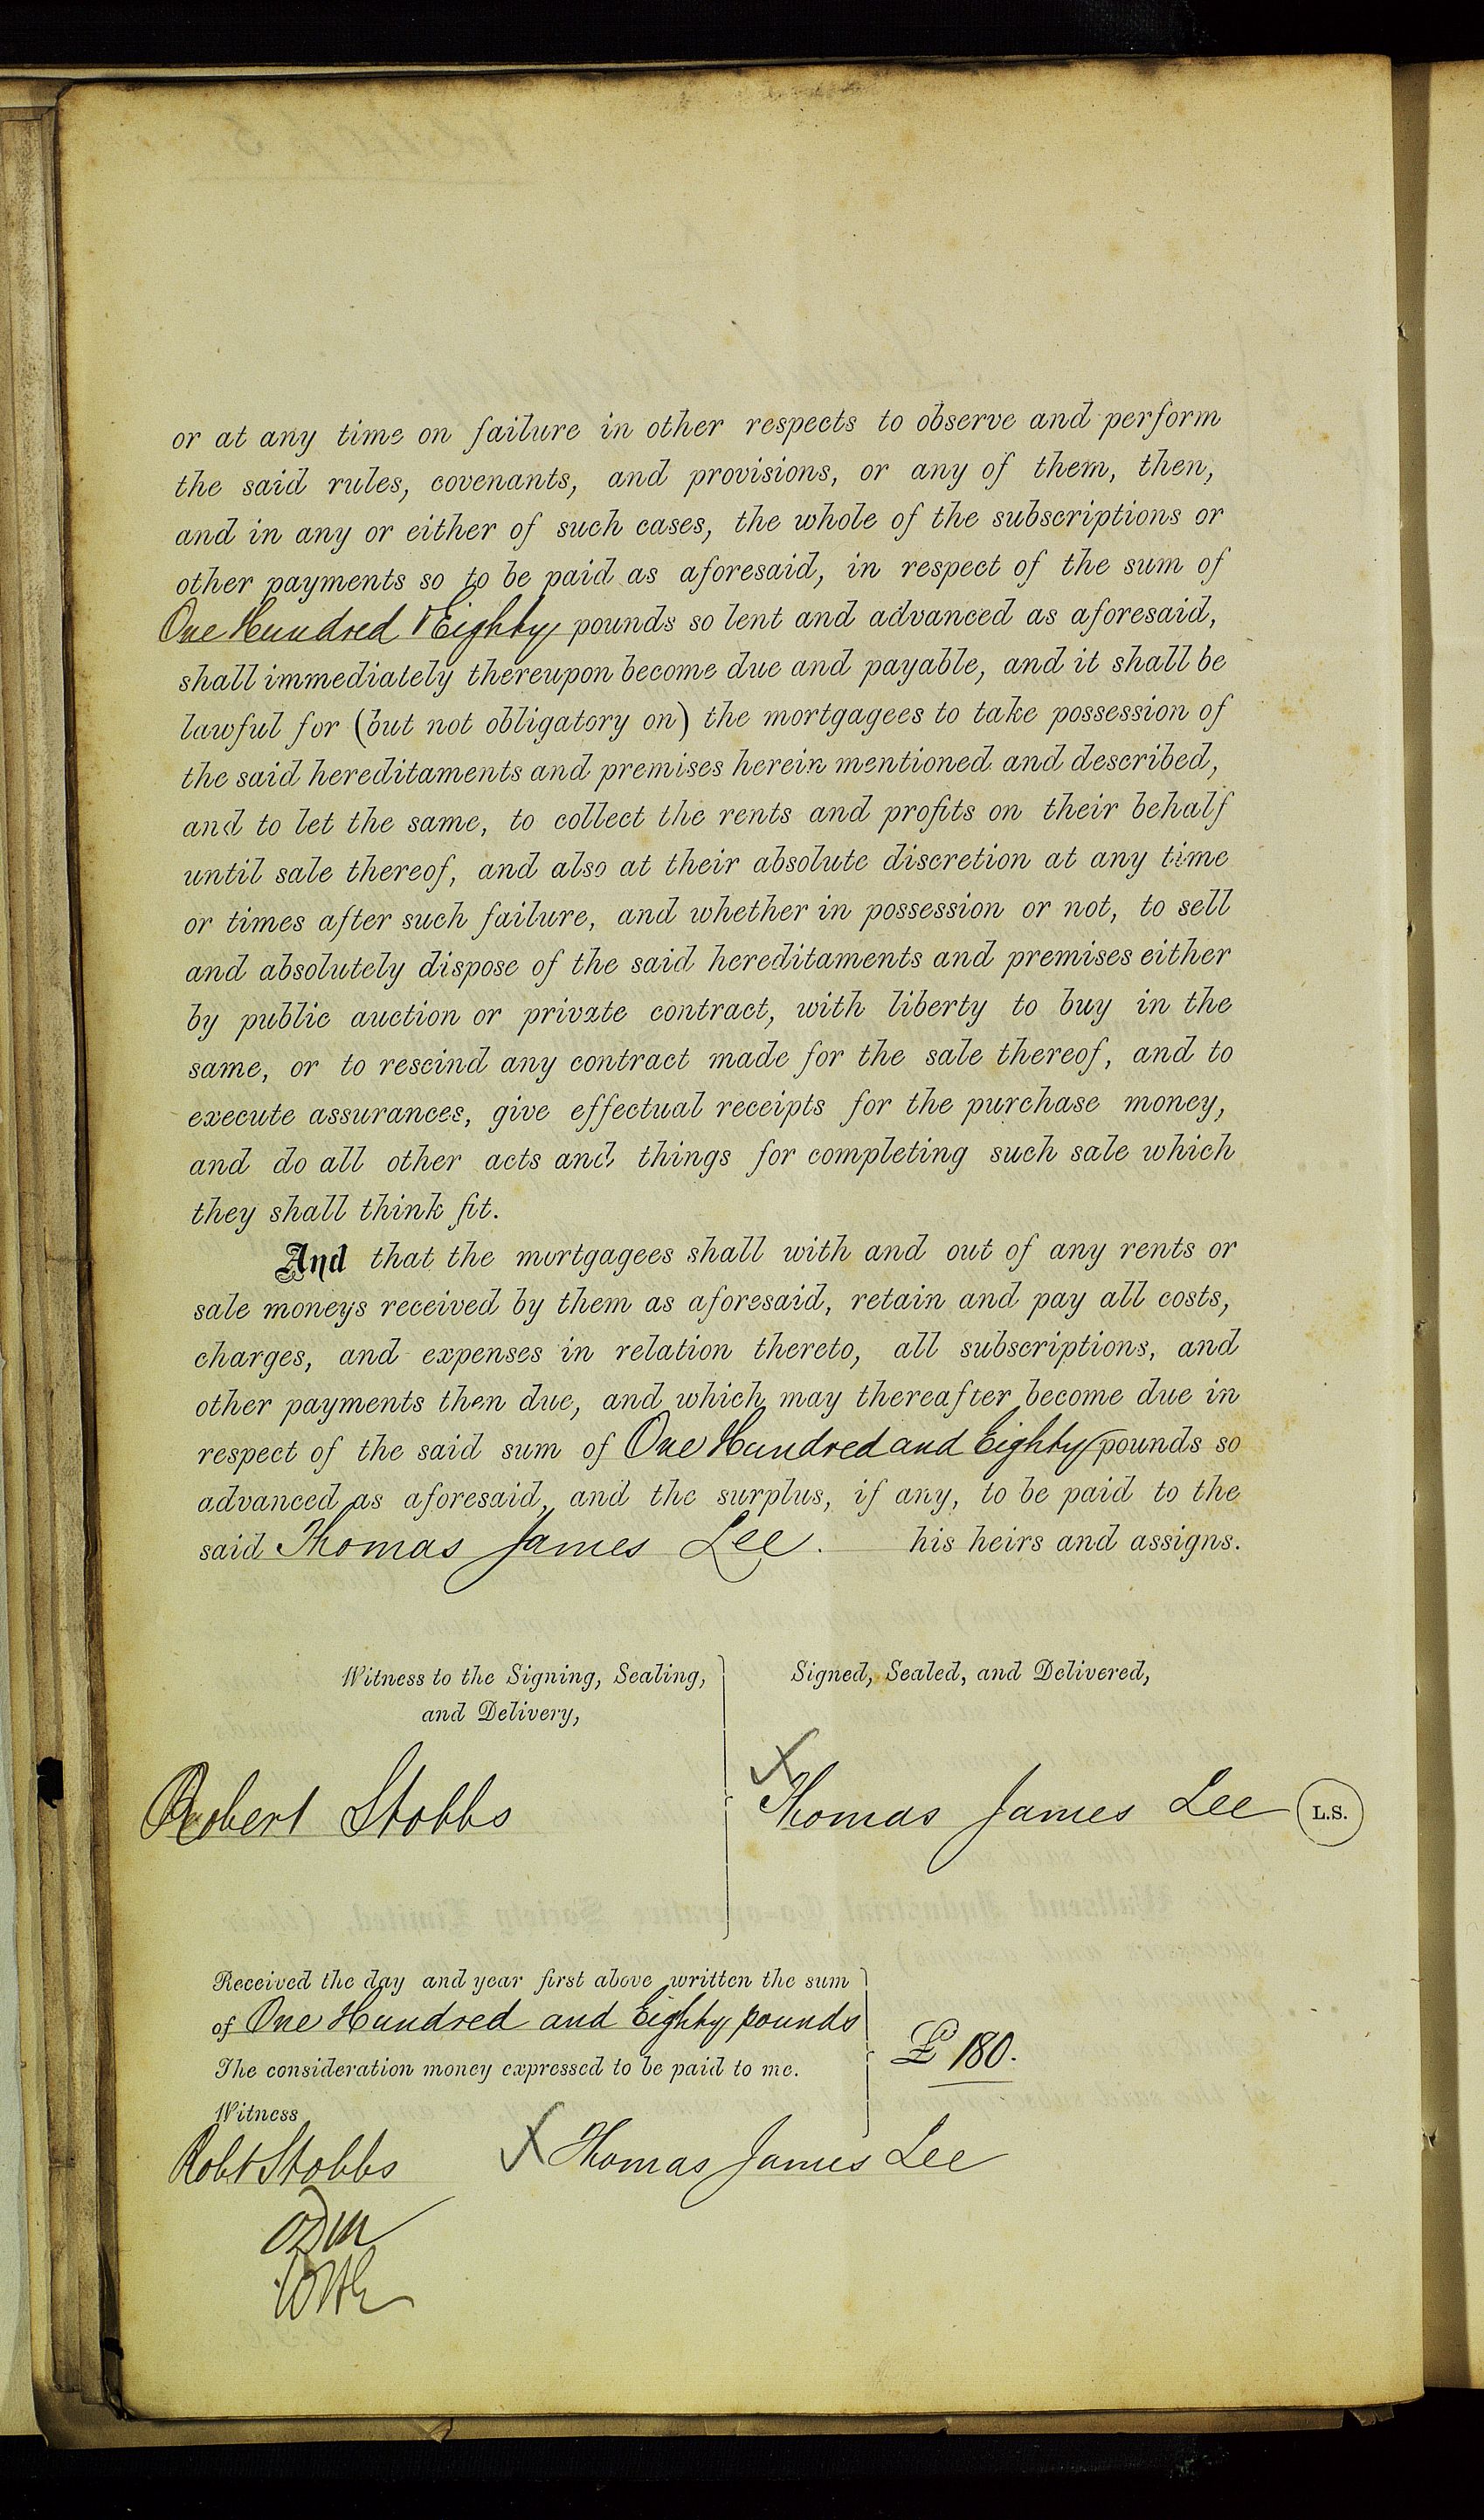 or at any time on failure in other respects to observe and perform
the said rules, covenants, and provisions, or any of them, then,
and in any or either of such cases, the whole of the subscriptions or
other payments so to be paid as aforesaid, in respect of the sum of
One Hundred & Eighty pounds so lent and advanced as aforesaid,
shall immediately thereupon become due and payable, and it shall be
lawful for (but not obligatory on) the mortgagees to take possession of
the said hereditaments and premises herein mentioned and described,
and to let the same, to collect the rents and profits on their behalf
until sale thereof, and also at their absolute discretion at any time
or times after such failure, and whether in possession or not, to sell
and absolutely dispose of the said hereditaments and premises either
by public auction or private contract, with liberty to buy in the
same, or to rescind any contract made for the sale thereof, and to
execute assurances, give effectual receipts for the purchase money,
and do all other acts and things for completing such sale which
they shall think fit.
And that the mortgagees shall with and out of any rents or
sale moneys received by them as aforesaid, retain and pay all costs,
charges, and expenses in relation thereto, all subscriptions, and
other payments then due, and which may thereafter become due in
respect of the said sum of One Hundred and Eighty pounds so
advanced as aforesaid, and the surplus, if any, to be paid to the
said Thomas James Lee. his heirs and assigns.
Witness to the Signing, Sealing,
and Delivery,
Robert Stobbs
Signed, Sealed, and Delivered,
Thomas James Lee L.S.
Received the day and year first above written the sum
of One Hundred and Eighty pounds
The consideration money expressed to be paid to me.
£180.
Witness
Robt Stobbs
Thomas James Lee